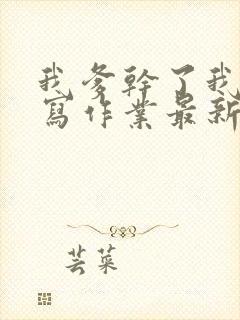 我爹幹了我
寫作業最新
芸菜